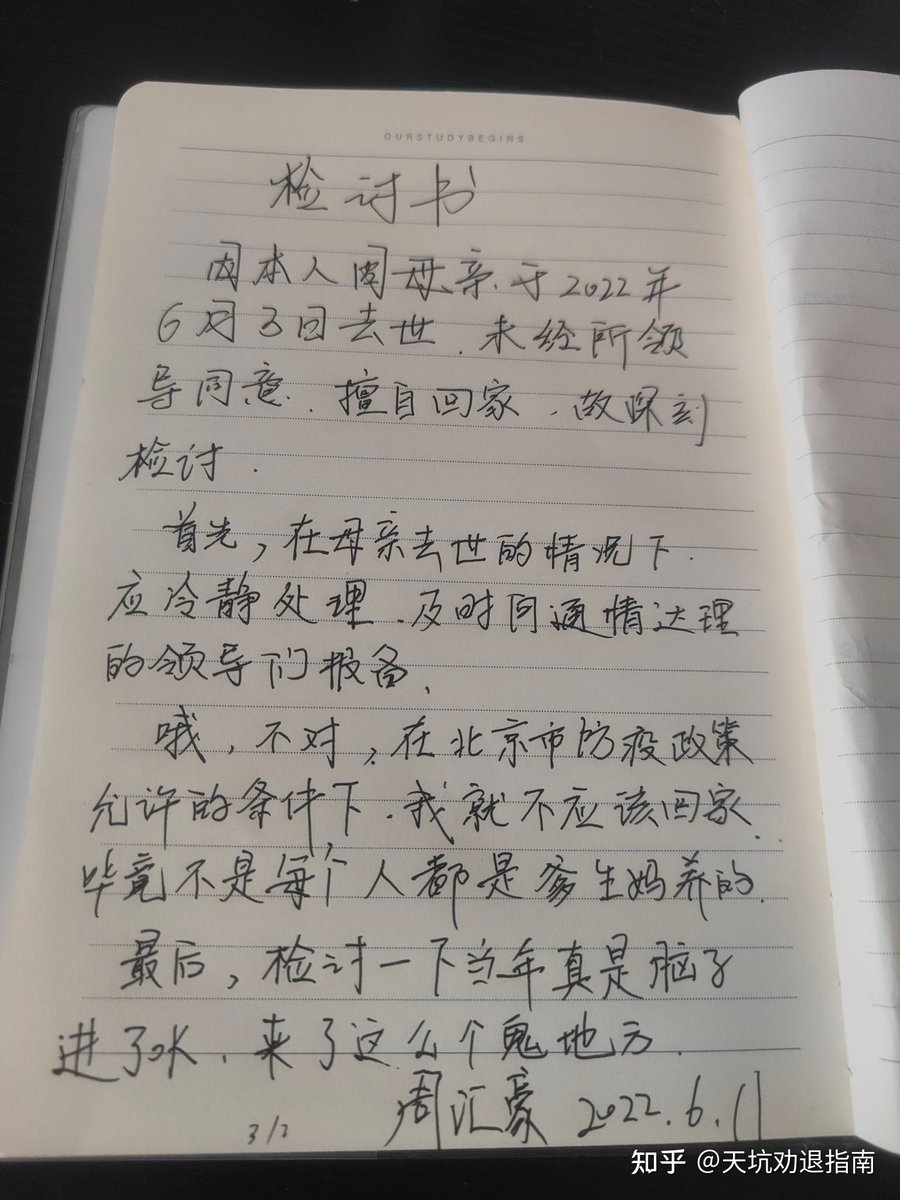 OURSTUDYBEGINS
检讨书
因本人因母亲.于2022年
6月3日去世.未经所领
导同意.擅自回家.故深刻
检讨.
首先,在母亲去世的情况下.
应冷静处理.及时向通情达理
的领导们报备.
哦,不对,在北京市防疫政策
允许的条件下.我就不应该回家.
毕竟不是每个人都是爹生妈养的.
最后,检讨一下当年真是脑子
进了水.来了这么个鬼地方.
周汇豪 2022.6.11
知乎 @天坑劝退指南